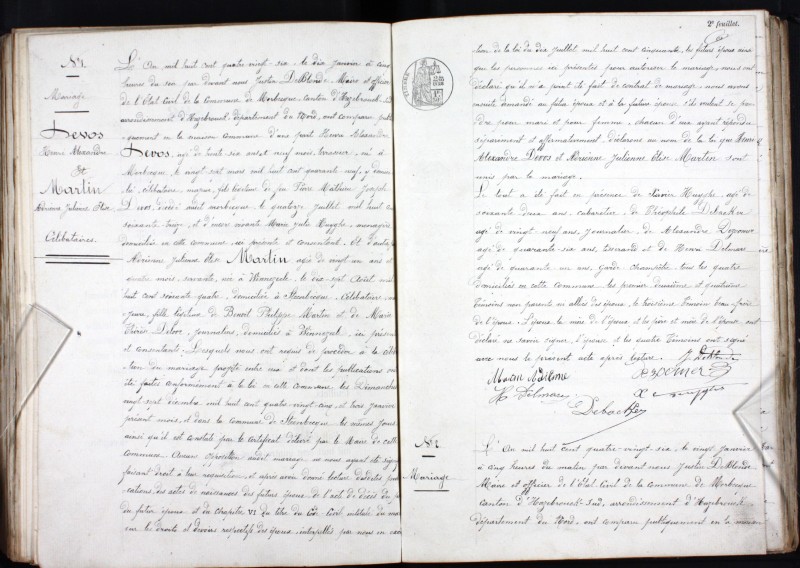 N° 1.
Mariage
Devos
Henri Alexandre
Et
Martin
Adrienne Julienne Elise
Célibataires.
L'An mil huit cent quatre vingt-six, le dix janvier à cinq
heures du soir par devant nous Justin DeBlonde Maire et officier
de l'Etat Civil de la Commune de Morbecque, canton d'Hazebrouck
arrondissement d'Hazebrouck, département du Nord, ont comparu publi
quement en la maison commune d'une part Henri Alexandre
Devos, agé de trente six ans et neuf mois, terrassier, né à
Morbecque le vingt sept mars mil huit cent quarante neuf, y domici
lié, célibataire, majeur, fils légitime de feu Pierre Mathieu Joseph
Devos, décédé audit morbecque le quatorze juillet mil huit cent
soixante treize, et d'encore vivante Marie Julie Huyghe, ménagère
domiciliée en cette commune, ici présente et consentante. Et d'autre
Adrienne Julienne Elise Martin agée de vingt un ans et
quatre mois, servante, née à Winnezeele, le dix sept Août mil
huit cent soixante quatre, domiciliée à Steenbecque, Célibataire
fille légitime de Benoit Philippe Martin et de Marie
journaliers, domiciliés à Winnezeele, ici présents
et consentants. Lesquels nous ont requis de procéder à la célé
bration du mariage projeté entre eux et dont les publications ont
été faites conformément à la loi en cette commune les Dimanches
vingt sept décembre mil huit cent quatre-vingt-cinq, et trois janvier
présent mois, et dans la commune de Steenbecque les mêmes jours
ainsi qu'il est constaté par le certificat délivré par le Maire de cette
commune. Aucune opposition audit mariage ne nous ayant été signi
faisant droit à leur requisition, et après avoir donné lecture desdites publi
cations, des actes de naissances des futurs époux, de l'acte de décès du père
du futur époux et du chapitre VI du titre du Code Civil intitulé du mariage
sur les droits et devoirs respectifs des époux, interpellés par nous en exécu
2e feuillet.
tion de la loi du dix juillet mil huit cent cinquante, les futurs époux ainsi
que les personnes ici présentes pour autoriser le mariage, nous ont
déclaré qu'il n'a point été fait de contrat de mariage. nous avons
ensuite demandé au futur époux et à la future épouse s'ils veulent se pren
dre pour mari et pour femme, chacun d'eux ayant répondu
séparément et affirmativement, déclarons au nom de la loi que Henri
Alexandre Devos et Adrienne Julienne Elise Martin sont
unis par le mariage.
Le tout a été fait en présence de Xavier Huyghe, agé de
soixante deux ans, cabaretier, de Théophile Debacker
agé de vingt neuf ans, journalier, de Alexandre
agé de quarante-six ans, tisserand et de Henri Delmaere
agé de quarante un ans, garde champêtre, tous les quatre
domiciliés en cette commune, les premier, deuxième, et quatrième
témoins non parents ni alliés des époux, le troisième témoin beau-frère
de l'époux. L'époux, la mère de l'époux, et les père et mère de l'épouse ont
déclaré ne savoir signer. L'épouse et les quatre témoins ont signé
avec nous le présent acte après lecture. J. DeBlonde
Martin Adrienne
H Delmaere
X. Huyghe
Debacker
N° 2.
Mariage
L'An mil huit cent quatre-vingt-six, le vingt janvier
à cinq heures du matin par devant nous Justin DeBlonde
Maire et officier de l'Etat Civil de la Commune de Morbecque
canton d'Hazebrouck-Sud, arrondissement d'Hazebrouck
département du Nord, ont comparu publiquement en la maison